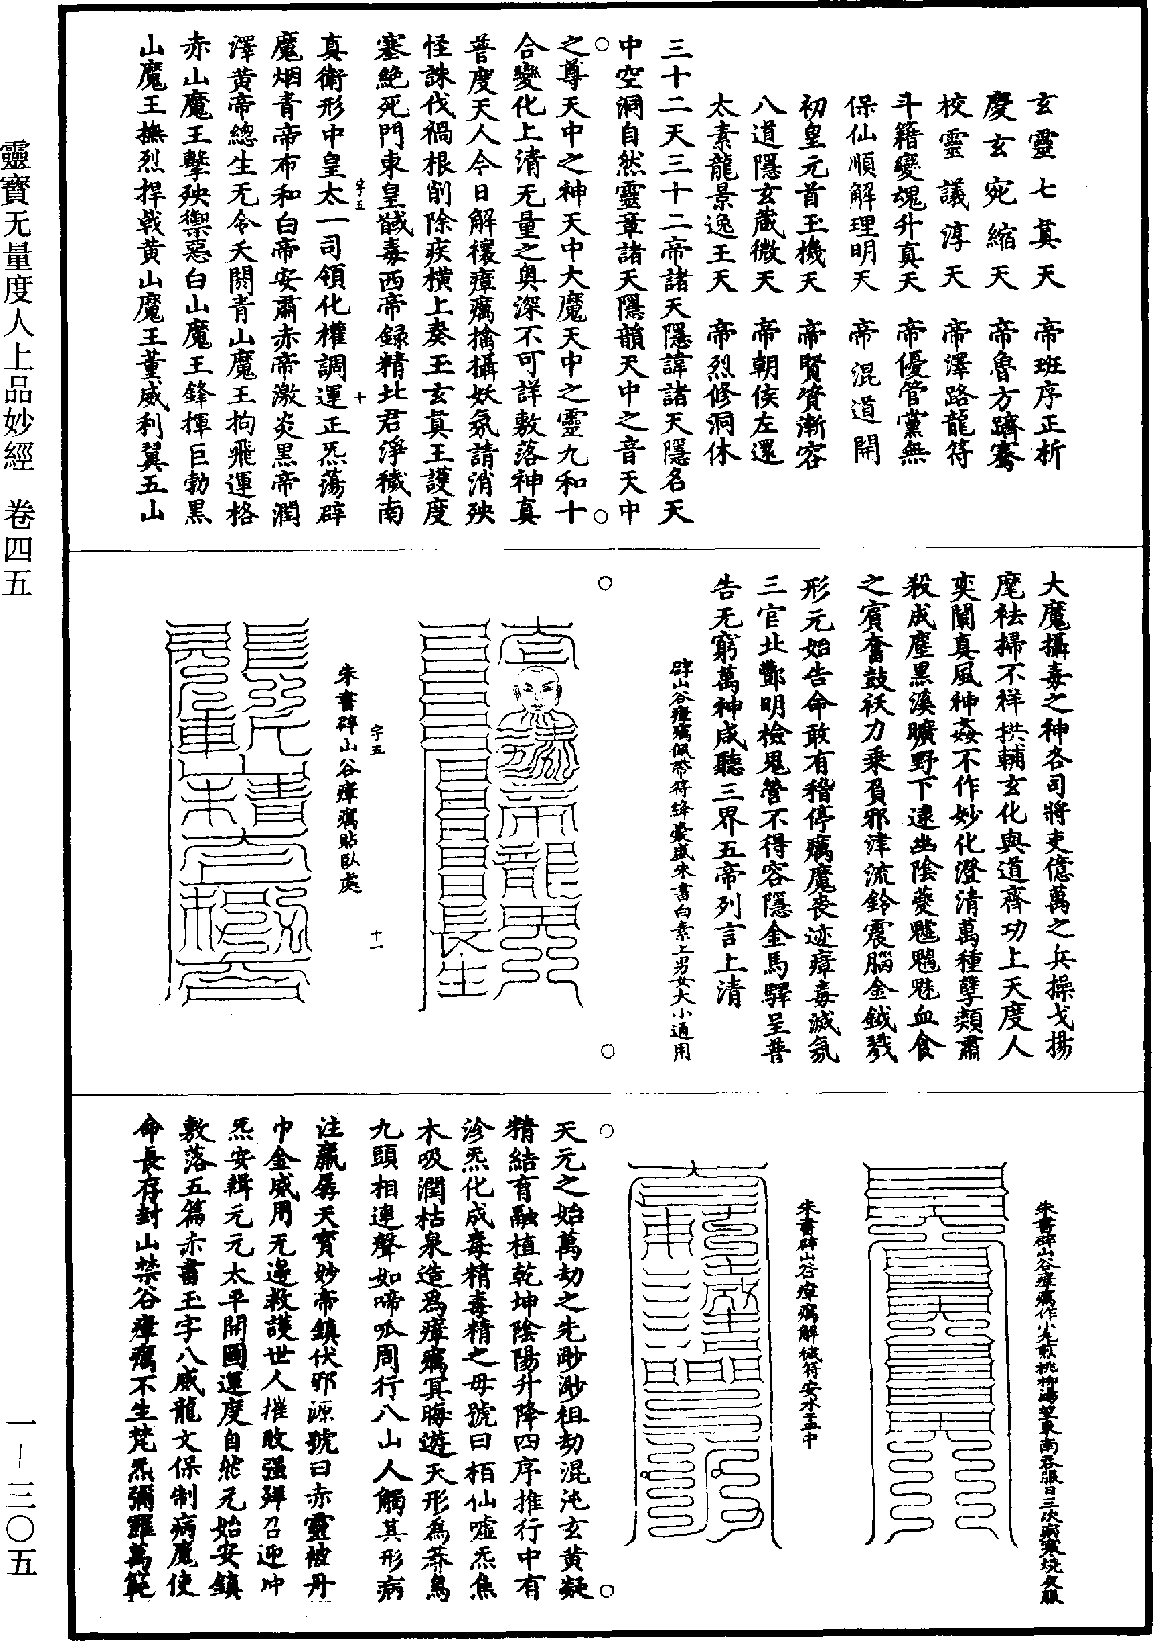 靈寶无量度人上品妙經　卷四五
一–三〇五
玄靈七真天　帝班序正析
慶玄宛縮天　帝魯方躋騫
校靈議淳天　帝澤路龍符
斗籍變魂升真天　帝優管黨無
保仙順解理明天　帝混道開
初皇元首玉機天　帝賢資漸容
八道隱玄藏微天　帝朝侯左還
太素龍景逸王天　帝烈修洞休
三十二天三十二帝諸天隱諱諸天隱名天
中空洞自然靈章諸天隱韻天中之音天中
之尊天中之神天中大魔天中之靈九和十
合變化上清无量之奥深不可詳敷落神真
普度天人今日解禳瘴癘擒攝妖氛請消殃
怪誅伐禍根削除疾橫上奏玉玄真王護度
塞絶死門東皇馘毒西帝録精北君淨穢南
字五　十
真衛形中皇太一司領化權調運正炁蕩辟
魔烟青帝布和白帝安肅赤帝激炎黑帝潤
澤黄帝總生无令夭閼青山魔王拘飛運格
赤山魔王擊殃禦惡白山魔王鋒揮巨勃黑
山魔王撫烈捍戟黄山魔王董威利翼五山
大魔攝毒之神各司將吏億萬之兵操戈揚
麾袪掃不祥拱輔玄化與道齊功上天度人
奕闡真風神姦不作妙化澄清萬種孽類肅
殺成塵黑溪曠野下逮幽陰夔魖魍魅血食
之賓奮鼓袄力乘負邪津流鈴震腦金鉞戮
形元始告命敢有稽停癘魔喪迹瘴毒滅氛
三官北酆明檢鬼營不得容隱金馬驛呈普
告无窮萬神咸聽三界五帝列言上清
辟山谷瘴癘佩帶符絳囊盛朱書白素上男女大小通用
字五　十一
朱書辟山谷瘴癘貼臥處
朱書辟山谷瘴癘作小先煎桃柳湯望東南吞服日三次病寒燒灰服
朱書辟山谷瘴癘解穢符安水盂中
天元之始萬劫之先眇眇祖劫混沌玄黄凝
精結育融植乾坤陰陽升降四序推行中有
沴炁化成毒精毒精之毋號曰栢仙噓炁焦
木吸潤枯泉造爲瘴癘冥晦遊天形為莽鳥
九頭相連聲如啼呱周行八山人觸其形病
注羸孱天寳妙帝鎮伏邪源號曰赤靈被丹
巾金威用无邊救護世人摧敗强殫召迎冲
炁安輯元元太平開圖運度自然元始安鎮
敷落五篇赤書玉字八威龍文保制病魔使
命長存封山禁谷瘴癘不生梵炁彌羅萬範